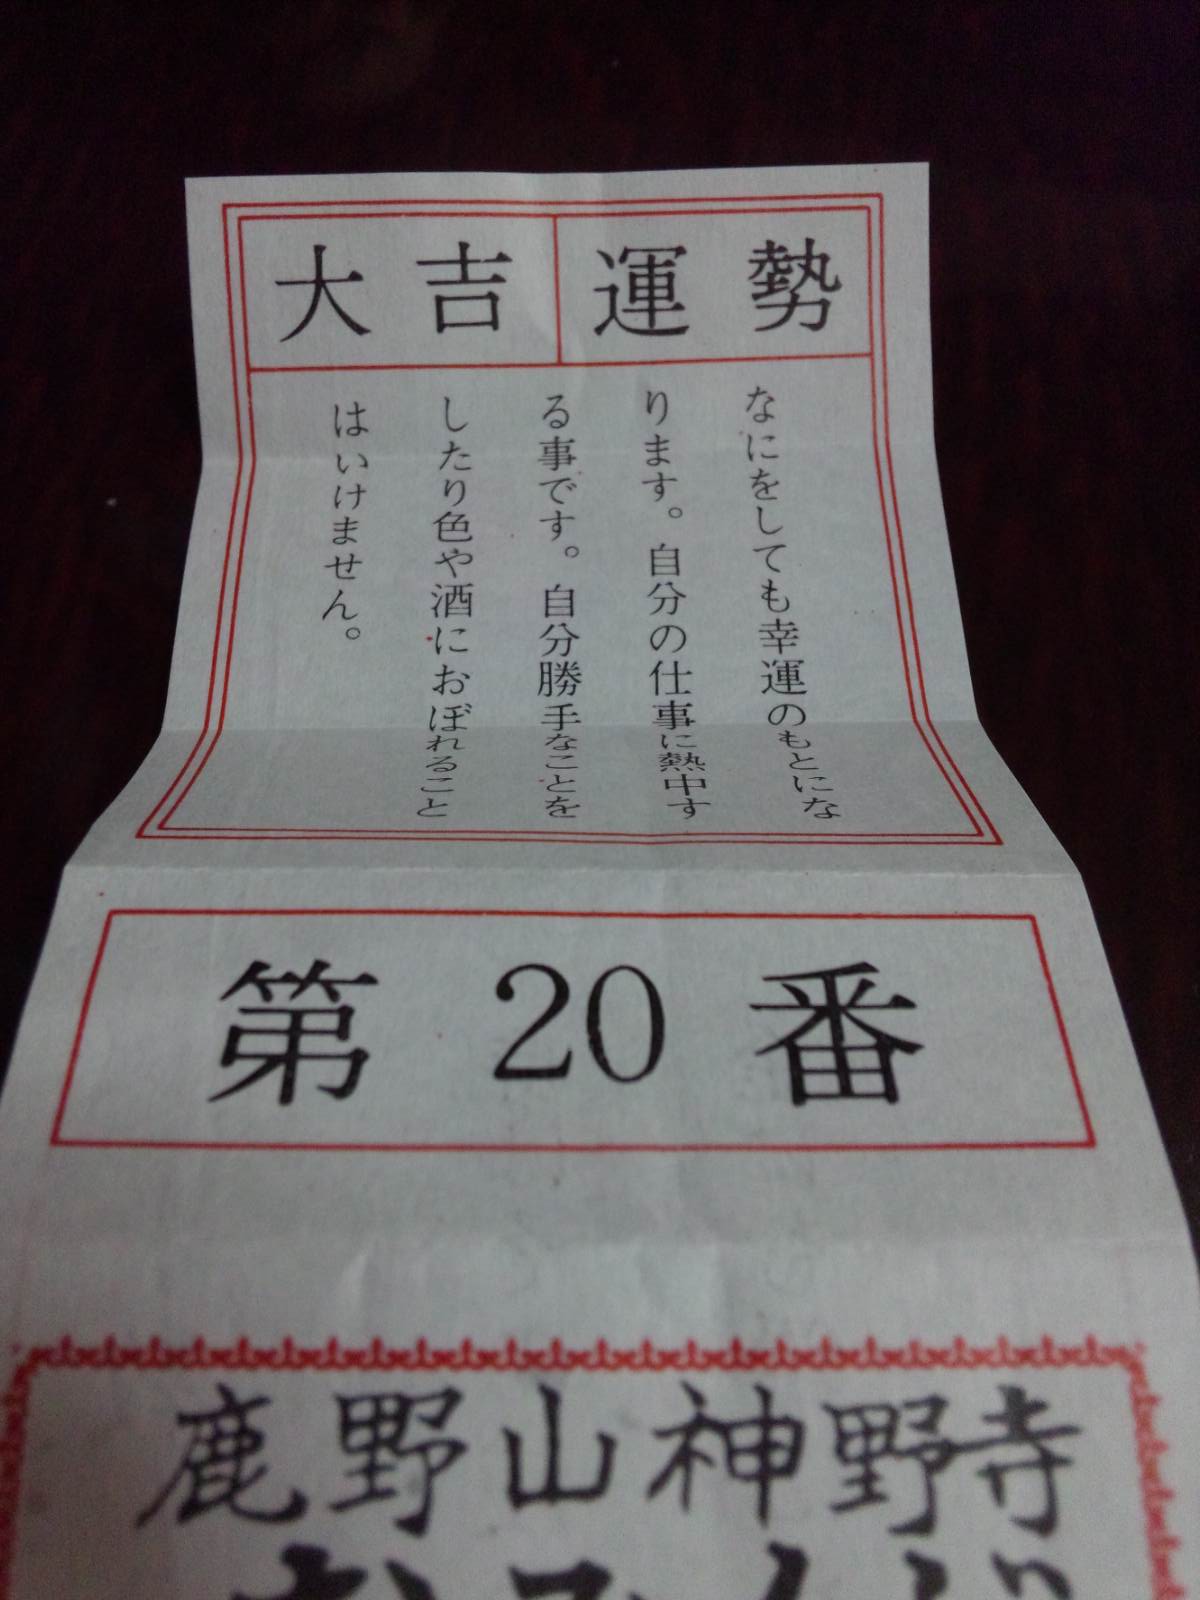 大吉 運勢
なにをしても幸運のもとにな
ります。自分の仕事に熱中す
る事です。自分勝手なことを
したり色や酒におぼれること
はいけません。
第20番
鹿野山神野寺
おみくじ